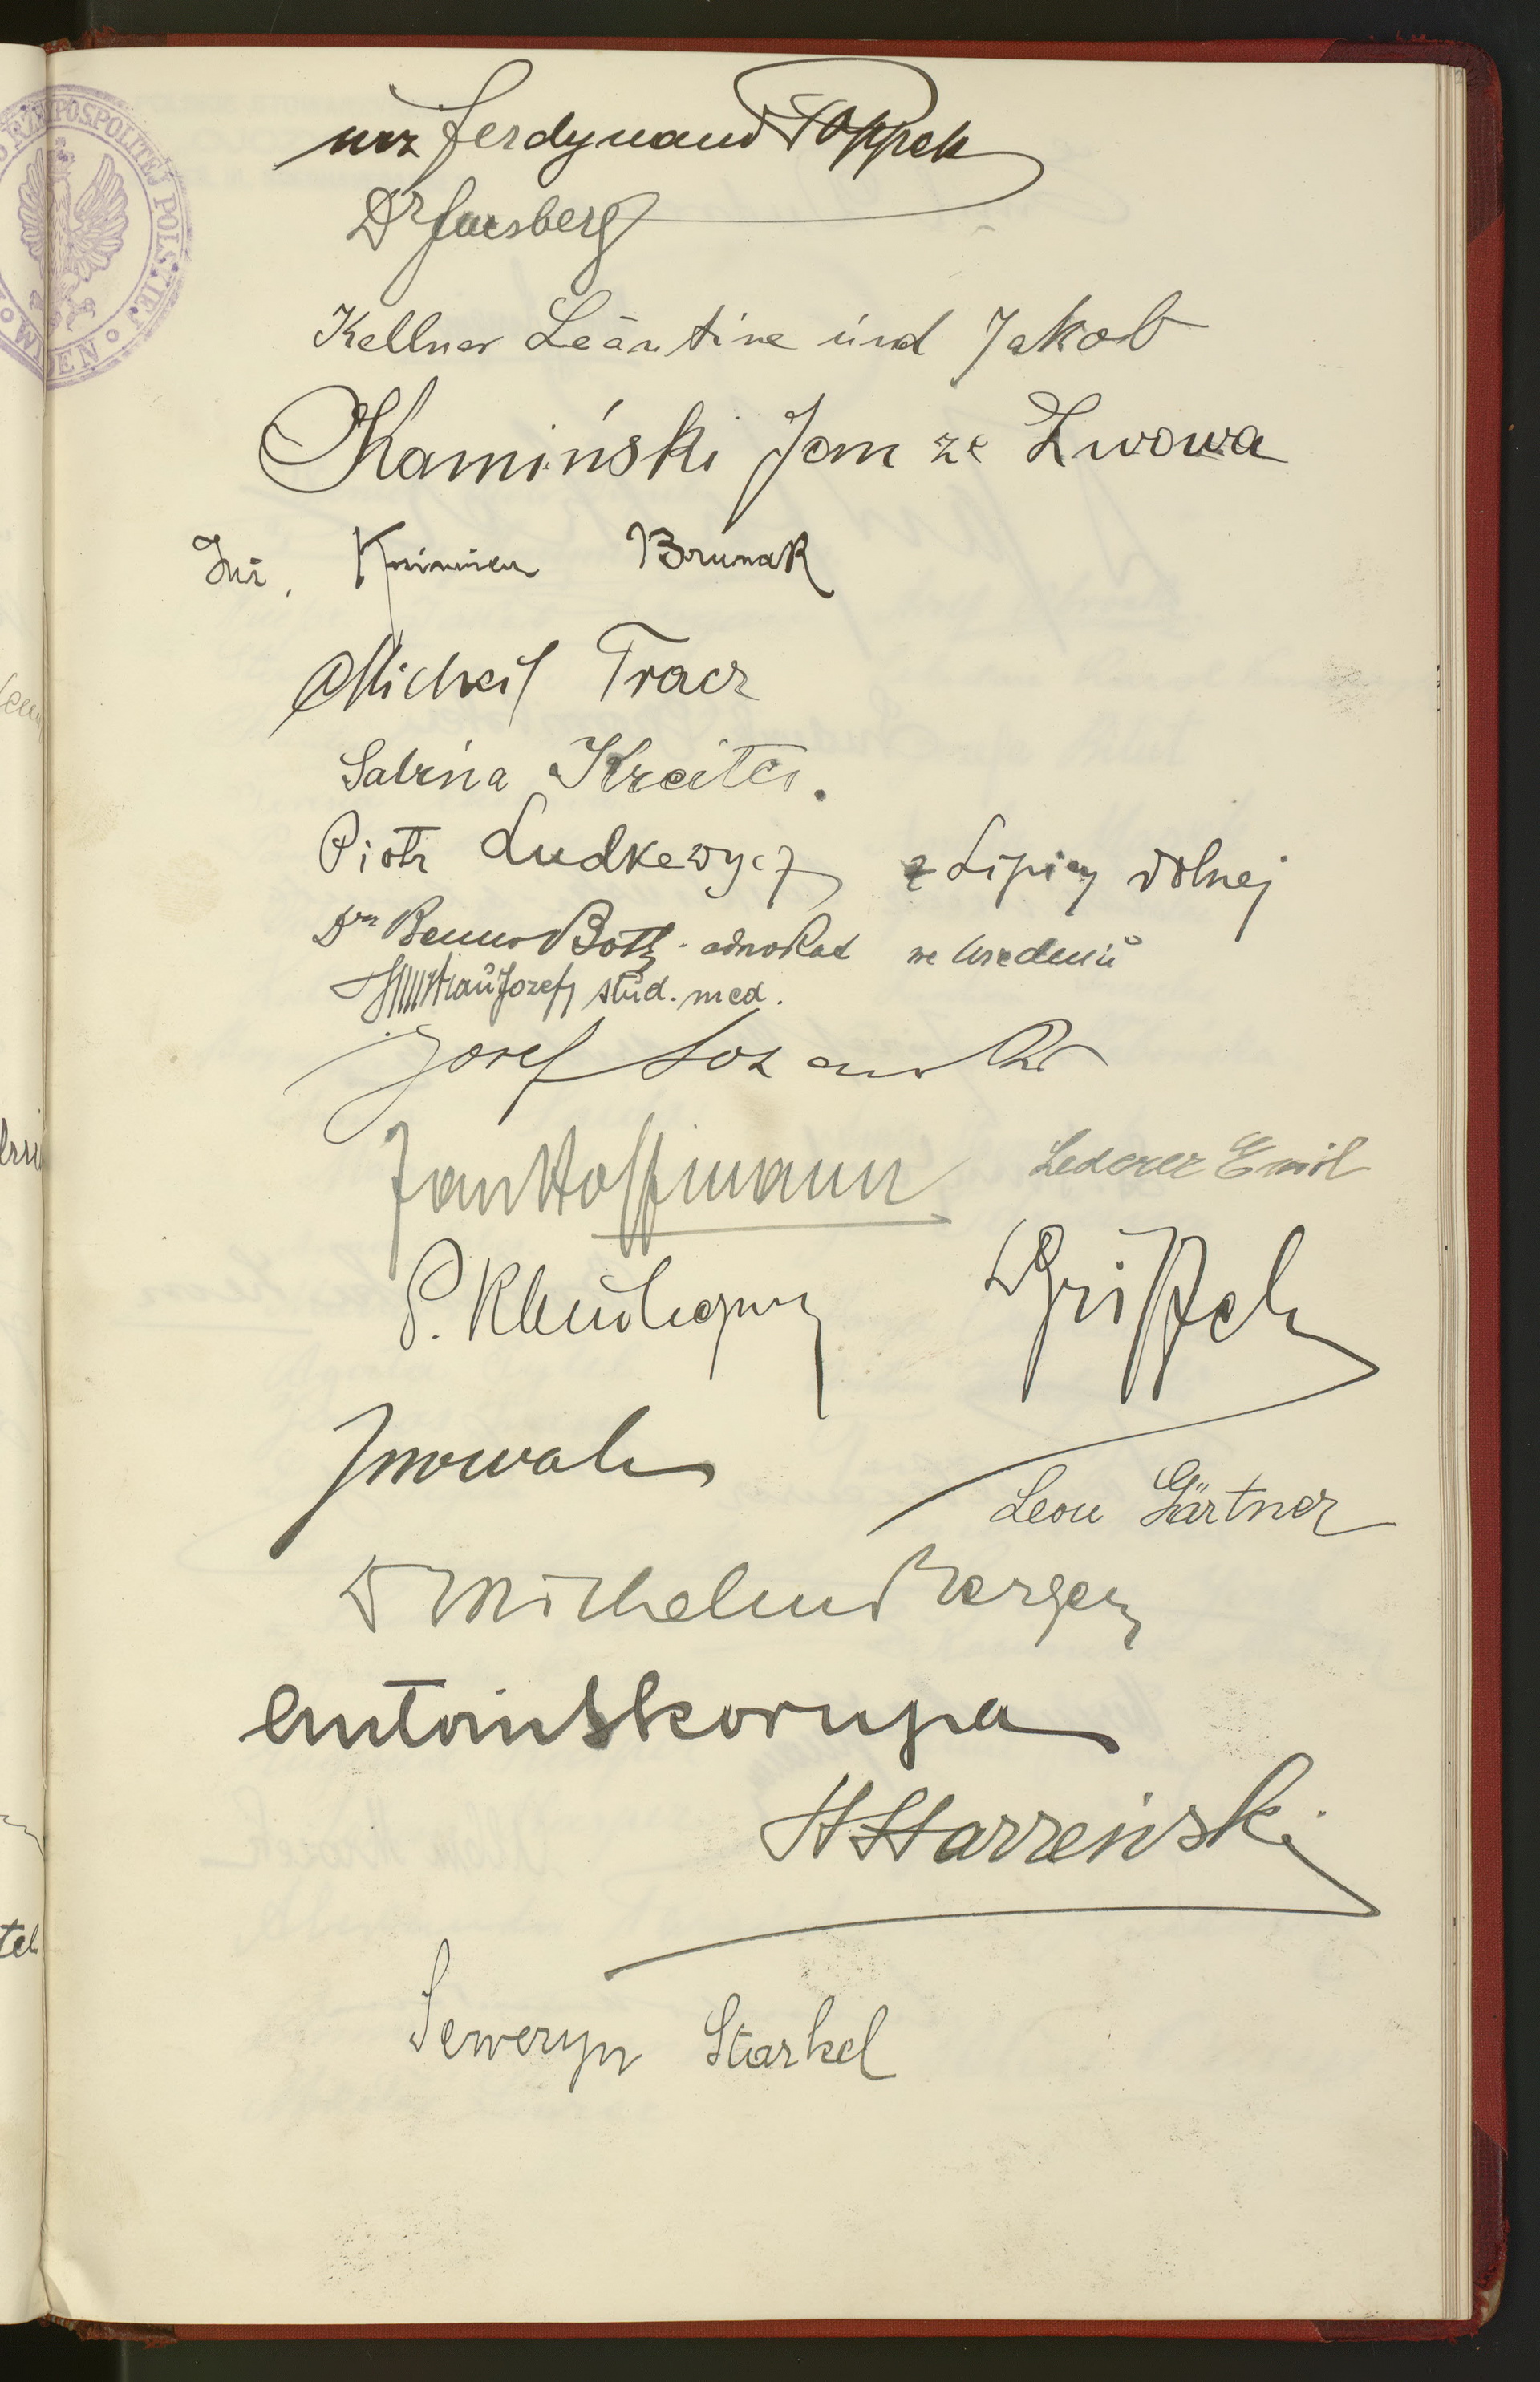 RZECZYPOSPOLITEJ POLSKIEJ WIEDEN
Ferdynand Poppek
Dr
Kellner Leontine und Jakob
Kamiński Jan ze Lwowa
Inż. Brunak
Michał Tracz
Sabina Kreiter.
Piotr Ludkewycz z Lipicy dolnej
Dr Benno Both adwokat we Wiedniu
Jozef stud. med.
Josef
Jan Hoffmann
Lederer Emil
P.
JNowak
Leon Gärtner
Dr Wilhelm Berger
Antoni Skorupa
H Starzeński
Seweryn Starkel